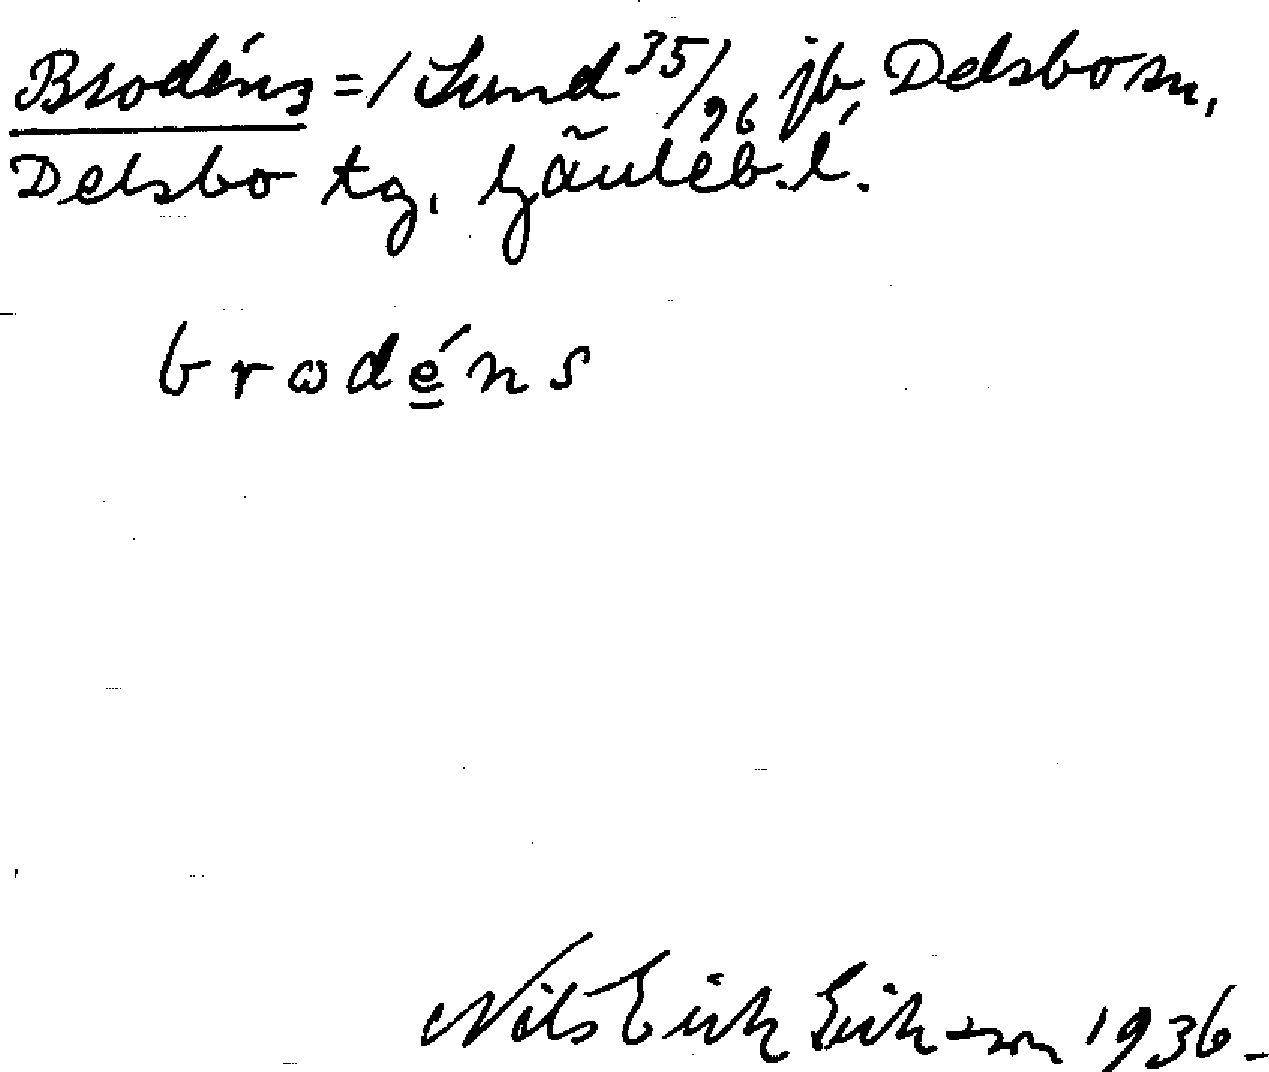 Brodéns =/ Sund 35/96 jb, Delsbo sn,
Delsbo tg, Gävleb. l.
brodéns
Nils Erik Eriksson 1936.